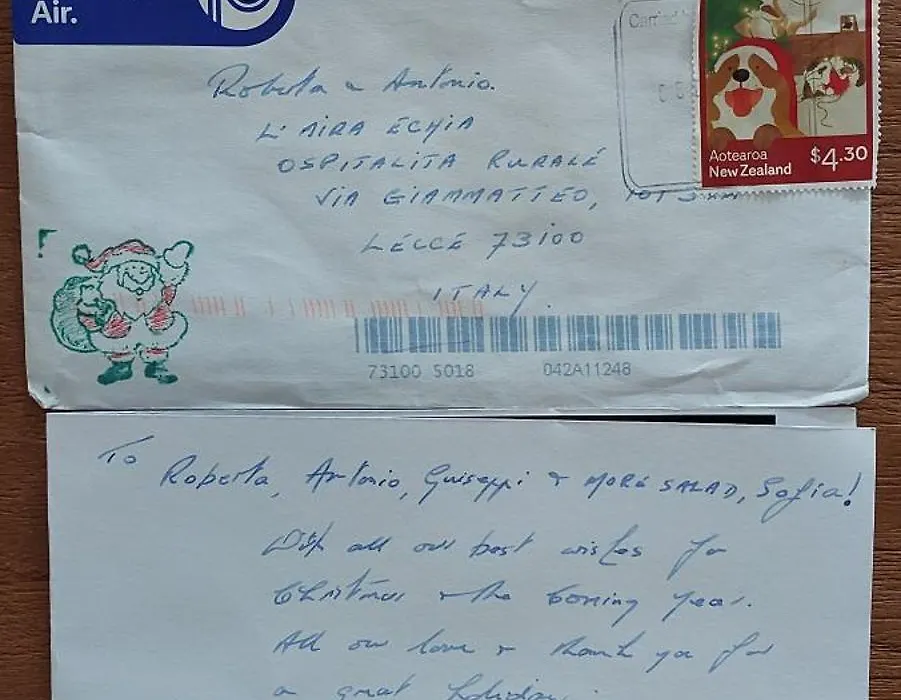 Air.
Aotearoa
New Zealand $4.30
Roberta & Antonio.
L'AIRA ECHIA
OSPITALITA RURALE
VIA GIAMMATTEO,
LECCE 73100
ITALY.
73100 5018 042A11248
To
Roberta, Antonio, Guiseppi & MORE SALAD, Sofia!
With all our best wishes for
Christmas & the coming year.
All our love & thank you for
a great holiday.